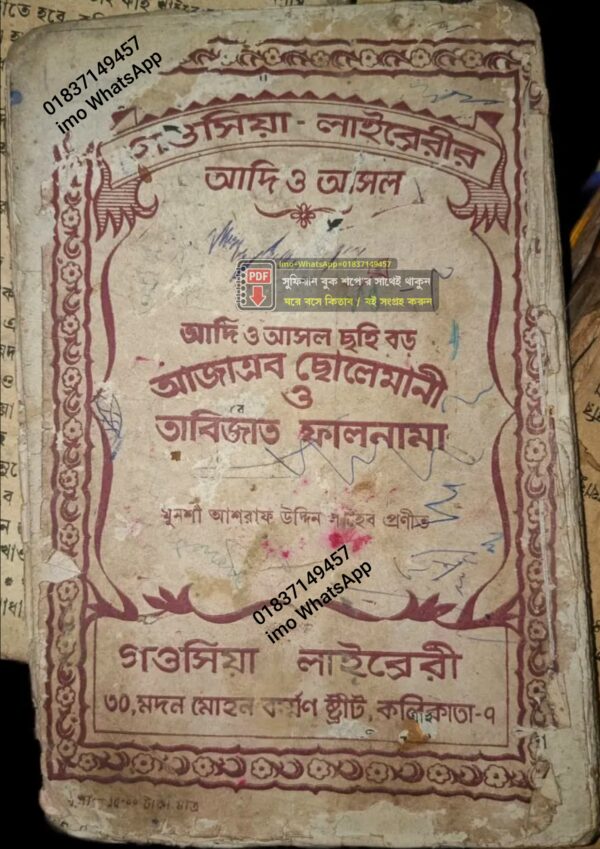 01837149457
imo WhatsApp
গওসিয়া - লাইব্রেরীর
আদি ও আসল
imo+WhatsApp+01837149457
PDF
সুফিয়ান বুক শপে'র সাথেই থাকুন
ঘরে বসে কিতাব / বই সংগ্রহ করুন
আদি ও আসল ছহি বড়
আজাএব ছোলেমানী
ও
তাবিজাত ফালনামা
মুনশী আশরাফ উদ্দিন সাহেব প্রণীত
01837149457
imo WhatsApp
গওসিয়া লাইব্রেরী
৩০, মদন মোহন বর্ম্মণ ষ্ট্রীট, কলিকাতা-৭